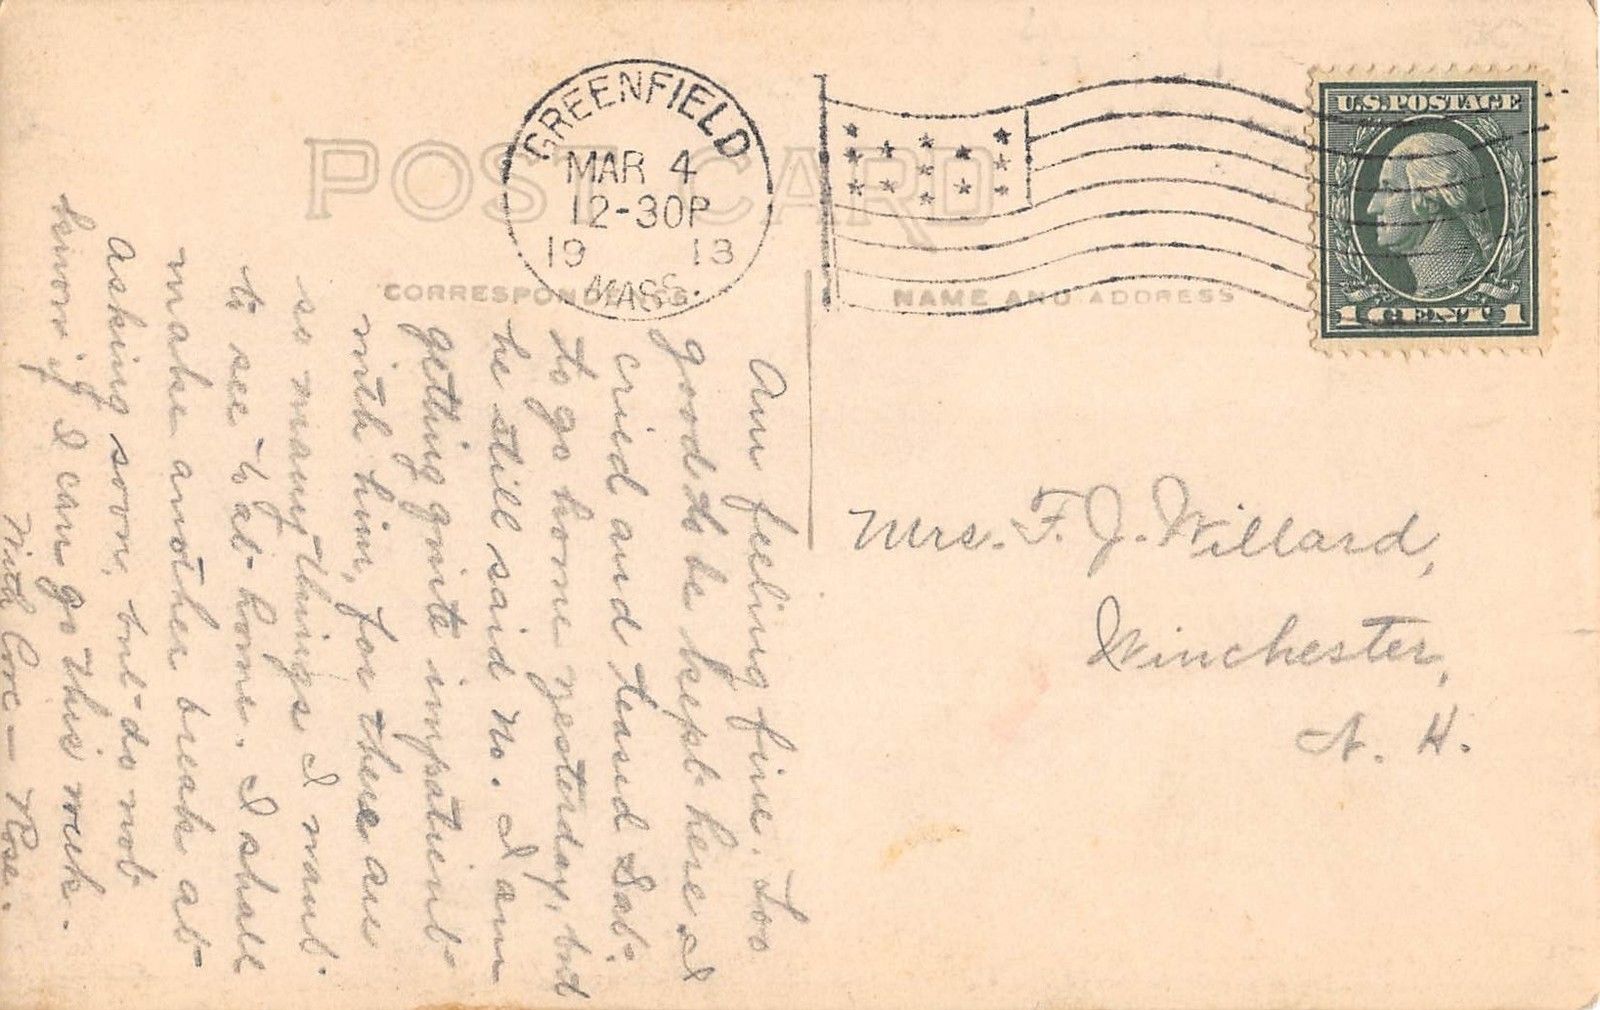 POST CARD
GREENFIELD
MAR 4
12-30P
19 13
MASS.
U.S. POSTAGE
1 CENT 1
CORRESPONDENCE
NAME AND ADDRESS
Am feeling fine. Too
good to be kept here. I
cried and teased Sat.
to go home yesterday, but
he still said no. I am
getting quite impatient
with him, for there are
so many things I want
to see to at home. I shall
make another break at
asking soon, but do not
know if I can go this week.
With love — Rose.
Mrs. F. J. Willard,
Winchester,
N. H.